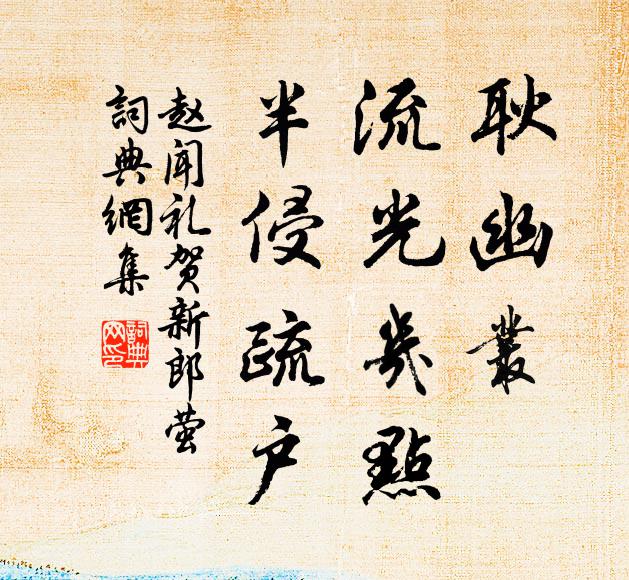 耿幽叢
流光幾點
半侵疏户
赵闻礼贺新郎萤
詞典網集
詞典網印